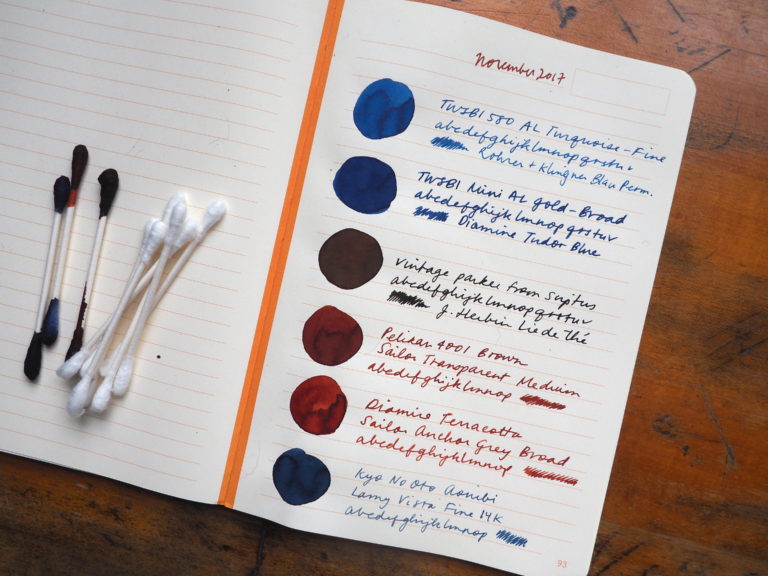 November 2017
TWSBI 580 AL Turquoise - Fine
abcdefghijklmnopqrstuv
Rohrer + Klingner Blau Perm.
TWSBI Mini AL gold - Broad
abcdefghijklmnopqrstuv
Diamine Tudor Blue
vintage parker from
abcdefghijklmnopqrstuv
J. Herbin Lie de Thé
Pelikan 4001 Brown
Sailor Transparent Medium
abcdefghijklmnop
Diamine Terracotta
Sailor Anchor Grey Broad
abcdefghijklmnop
Kyo No Oto Aonibi
Lamy Vista Fine 14K
abcdefghijklmnop
93